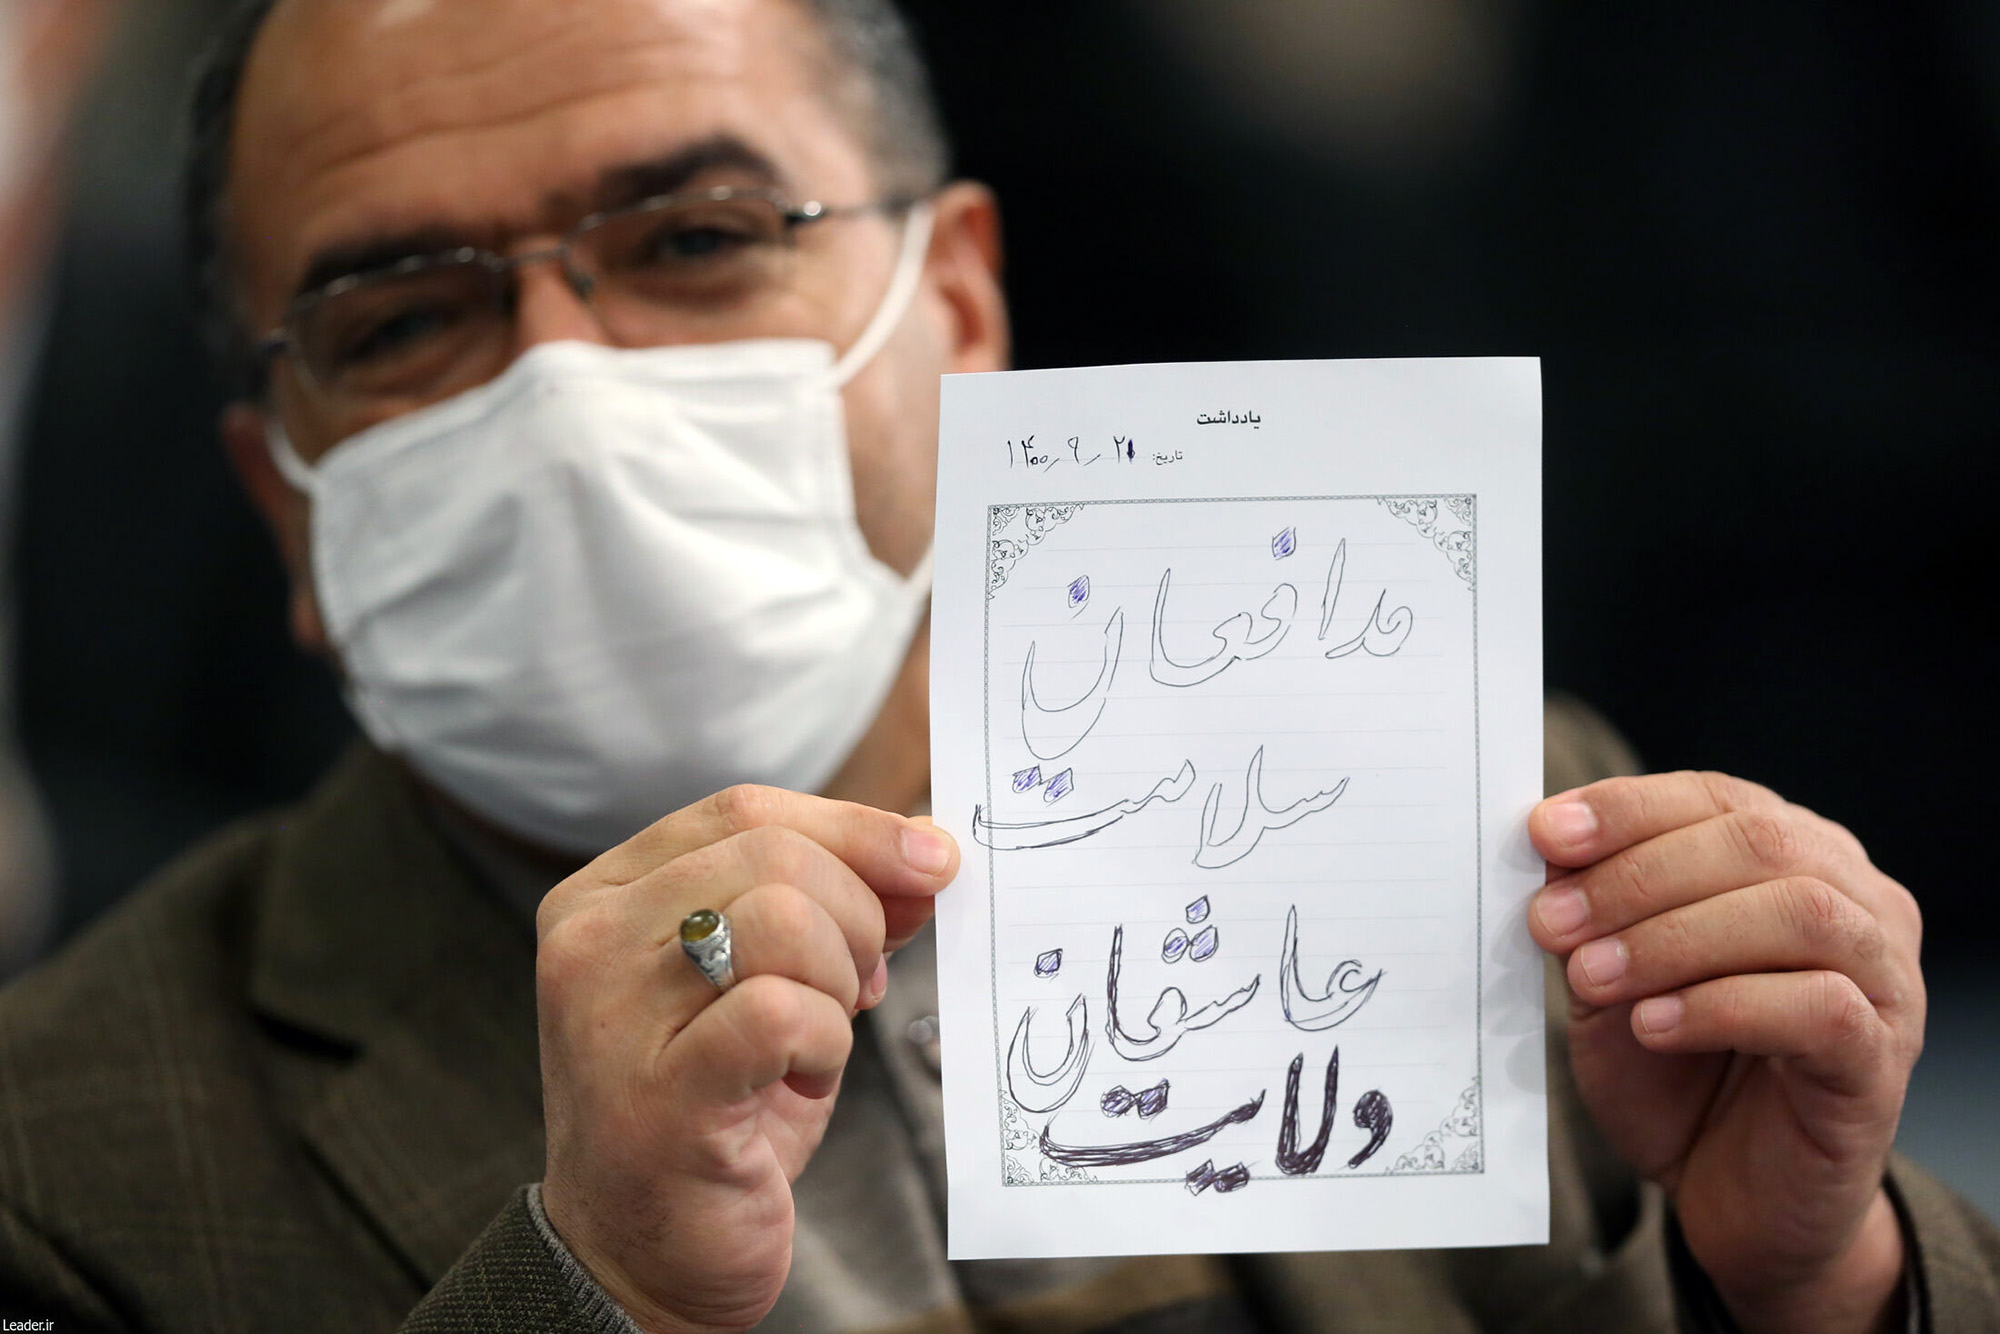 یادداشت
تاریخ: ۱۴۰۰/۹/۲۱
مدافعان
سلامت
عاشقان
ولایت
Leader.ir